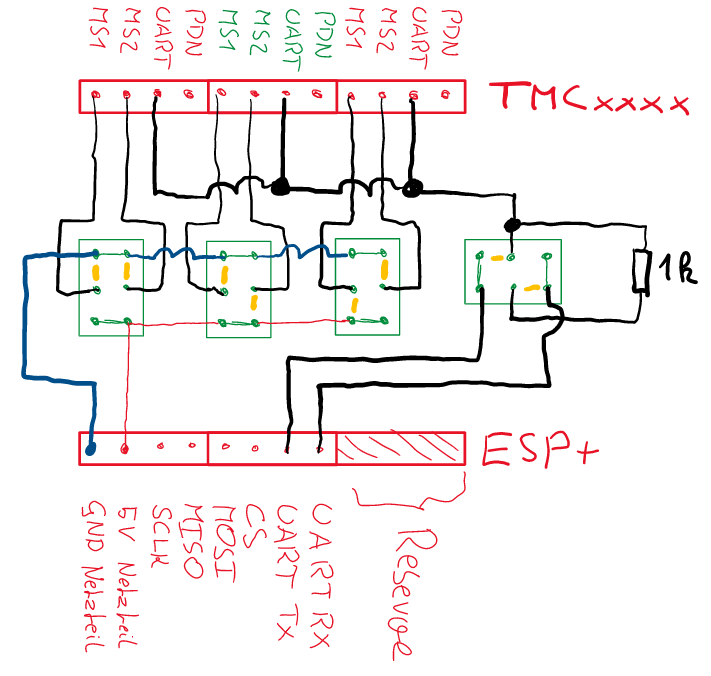 MS1
MS2
UART
PDN
MS1
MS2
UART
PDN
MS1
MS2
UART
PDN
TMCxxxx
1k
ESP+
GND Netzteil
5V Netzteil
SCLK
MISO
MOSI
CS
UART TX
UART RX
Reserve